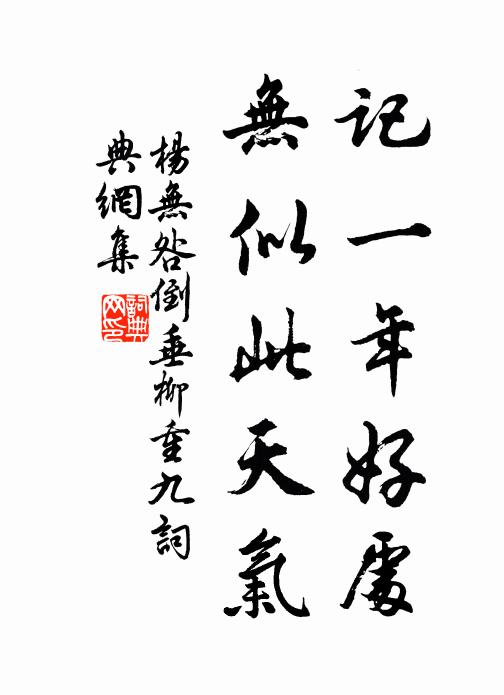 記一年好處
無似此天氣
楊無咎倒垂柳重九詞
典網集
詞典網印